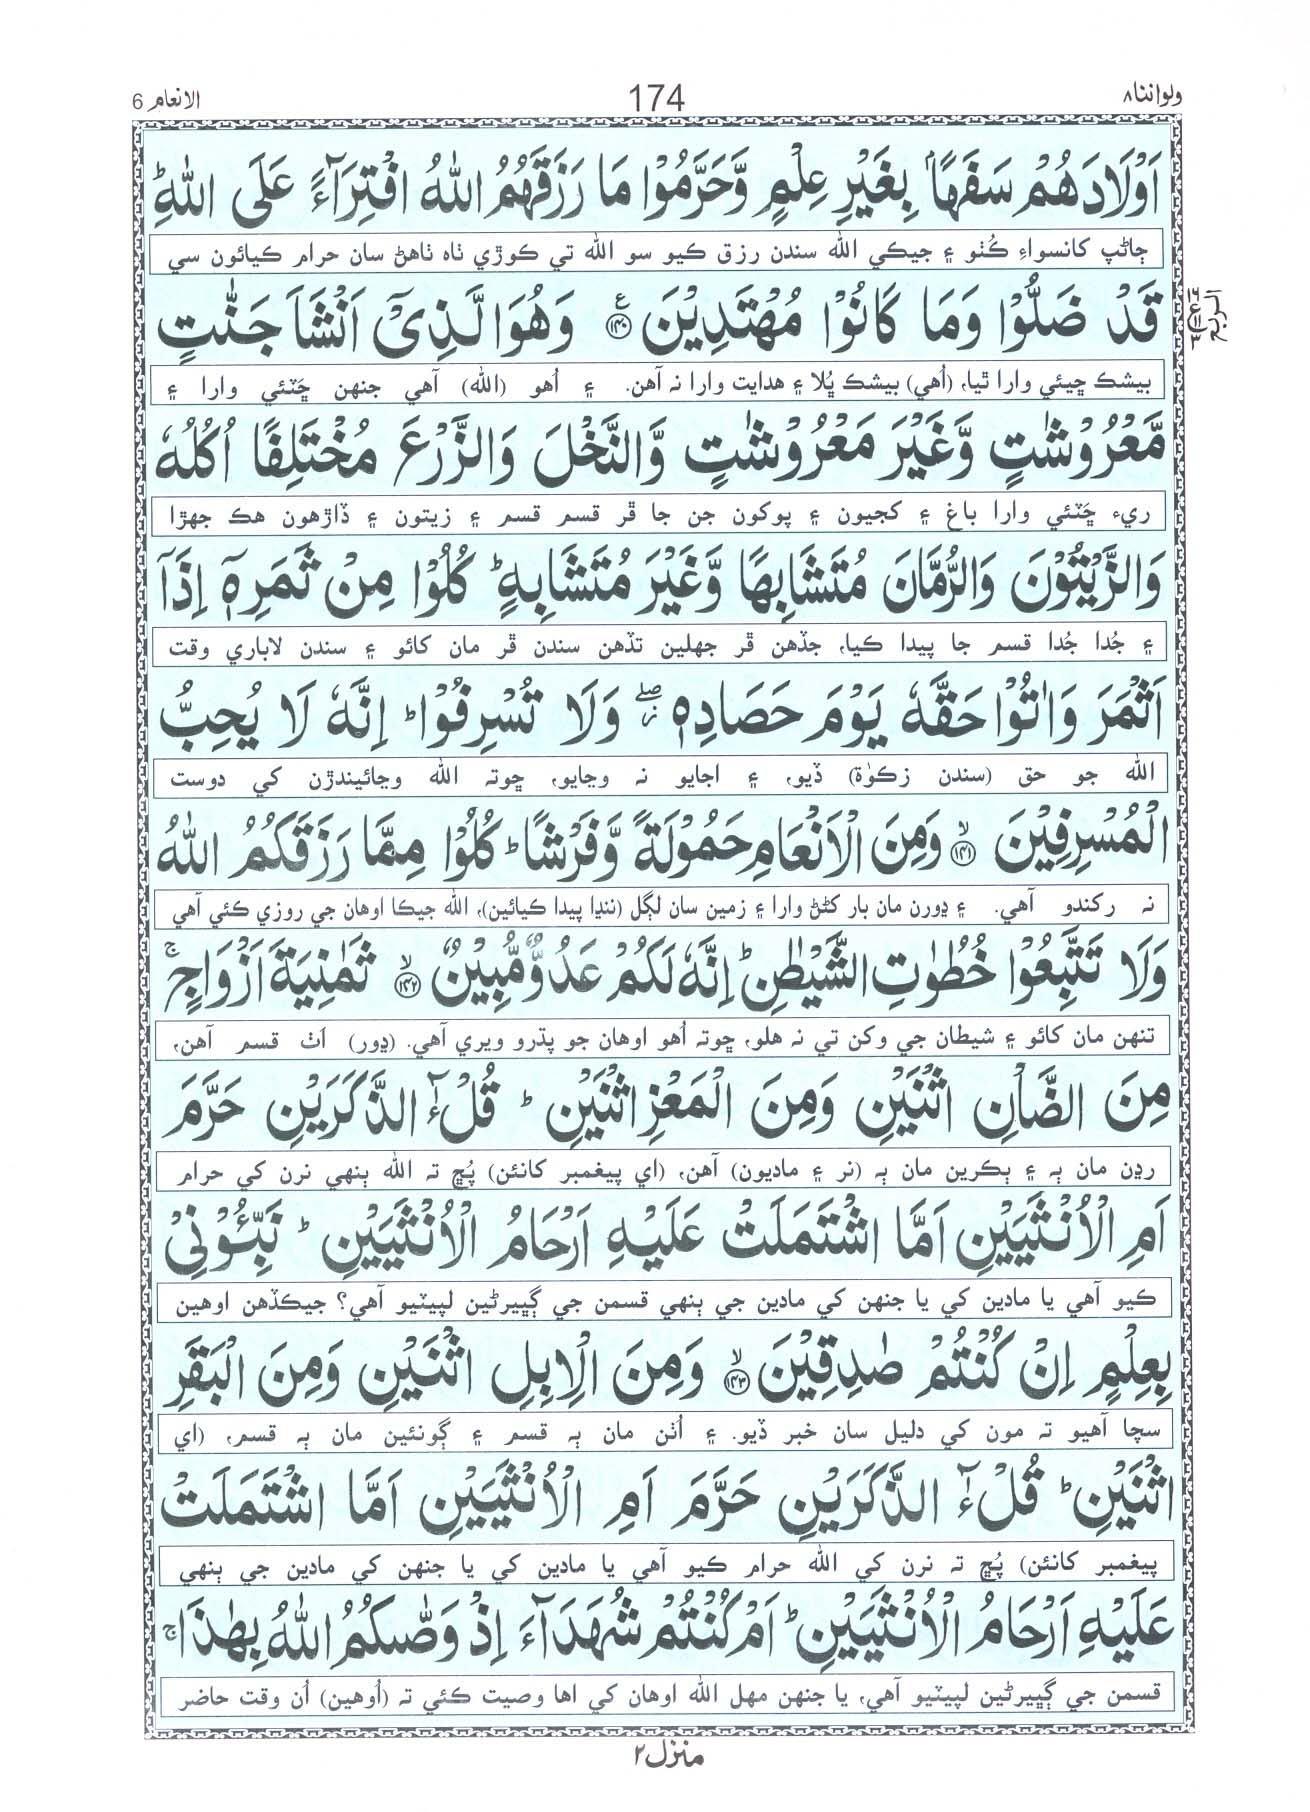 ولواننا ٨
174
الانعام 6
اَوْلَادَهُمْ سَفَهًاۢ بِغَيْرِ عِلْمٍ وَّحَرَّمُوْا مَا رَزَقَهُمُ اللّٰهُ افْتِرَآءً عَلَى اللّٰهِ ؕ
ڄاڻپ کانسواءِ ڪُٺو ۽ جيڪي الله سندن رزق ڪيو سو الله تي ڪوڙي ٺاه ٺاهڻ سان حرام ڪيائون سي
قَدْ ضَلُّوْا وَمَا كَانُوْا مُهْتَدِيْنَ ﴿۱۴۰﴾ ع وَهُوَ الَّذِىْٓ اَنْشَاَ جَنّٰتٍ
الربع
بيشڪ ڇيئي وارا ٿيا، (اُهي) بيشڪ ڀُلا ۽ هدايت وارا نه آهن. ۽ اُهو (الله) آهي جنهن ڇَٽئي وارا ۽
مَّعْرُوْشٰتٍ وَّغَيْرَ مَعْرُوْشٰتٍ وَّالنَّخْلَ وَالزَّرْعَ مُخْتَلِفًا اُكُلُهٗ
ريءَ ڇَٽئي وارا باغ ۽ کجيون ۽ پوکون جن جا ڦر قسم قسم ۽ زيتون ۽ ڏاڙهون هڪ جهڙا
وَالزَّيْتُوْنَ وَالرُّمَّانَ مُتَشَابِهًا وَّغَيْرَ مُتَشَابِهٍ ؕ كُلُوْا مِنْ ثَمَرِهٖٓ اِذَآ
۽ جُدا جُدا قسم جا پيدا ڪيا، جڏهن ڦر جهلين تڏهن سندن ڦر مان کائو ۽ سندن لاباري وقت
اَثْمَرَ وَاٰتُوْا حَقَّهٗ يَوْمَ حَصَادِهٖ ۖ وَلَا تُسْرِفُوْا ؕ اِنَّهٗ لَا يُحِبُّ
الله جو حق (سندن زڪوٰة) ڏيو، ۽ اجايو نه وڃايو، ڇوته الله وڃائيندڙن کي دوست
الْمُسْرِفِيْنَ ﴿۱۴۱﴾ وَمِنَ الْاَنْعَامِ حَمُوْلَةً وَّفَرْشًا ؕ كُلُوْا مِمَّا رَزَقَكُمُ اللّٰهُ
نه رکندو آهي. ۽ ڍورن مان بار کڻڻ وارا ۽ زمين سان لڳل (ننڍا پيدا ڪيائين)، الله جيڪا اوهان جي روزي ڪئي آهي
وَلَا تَتَّبِعُوْا خُطُوٰتِ الشَّيْطٰنِ ؕ اِنَّهٗ لَكُمْ عَدُوٌّ مُّبِيْنٌ ﴿۱۴۲﴾ ثَمٰنِيَةَ اَزْوَاجٍ ۚ
تنهن مان کائو ۽ شيطان جي وکن تي نه هلو، ڇوته اُهو اوهان جو پڌرو ويري آهي. (ڍور) اَٺ قسم آهن،
مِنَ الضَّاْنِ اثْنَيْنِ وَمِنَ الْمَعْزِ اثْنَيْنِ ؕ قُلْ ءٰٓالذَّكَرَيْنِ حَرَّمَ
رڍن مان ٻه ۽ ٻڪرين مان ٻه (نر ۽ ماديون) آهن، (اي پيغمبر کانئن) پُڇ ته الله ٻنهي نرن کي حرام
اَمِ الْاُنْثَيَيْنِ اَمَّا اشْتَمَلَتْ عَلَيْهِ اَرْحَامُ الْاُنْثَيَيْنِ ؕ نَبِّـُٔوْنِىْ
ڪيو آهي يا مادين کي يا جنهن کي مادين جي ٻنهي قسمن جي ڳڀيرڻين لپيٽيو آهي؟ جيڪڏهن اوهين
بِعِلْمٍ اِنْ كُنْتُمْ صٰدِقِيْنَ ﴿۱۴۳﴾ وَمِنَ الْاِبِلِ اثْنَيْنِ وَمِنَ الْبَقَرِ
سچا آهيو ته مون کي دليل سان خبر ڏيو. ۽ اُٺن مان ٻه قسم ۽ ڳونئين مان ٻه قسم، (اي
اثْنَيْنِ ؕ قُلْ ءٰٓالذَّكَرَيْنِ حَرَّمَ اَمِ الْاُنْثَيَيْنِ اَمَّا اشْتَمَلَتْ
پيغمبر کانئن) پُڇ ته نرن کي الله حرام ڪيو آهي يا مادين کي يا جنهن کي مادين جي ٻنهي
عَلَيْهِ اَرْحَامُ الْاُنْثَيَيْنِ ؕ اَمْ كُنْتُمْ شُهَدَآءَ اِذْ وَصّٰىكُمُ اللّٰهُ بِهٰذَا ۚ
قسمن جي ڳڀيرڻين لپيٽيو آهي، يا جنهن مهل الله اوهان کي اها وصيت ڪئي ته (اُوهين) اُن وقت حاضر
منزل ٢